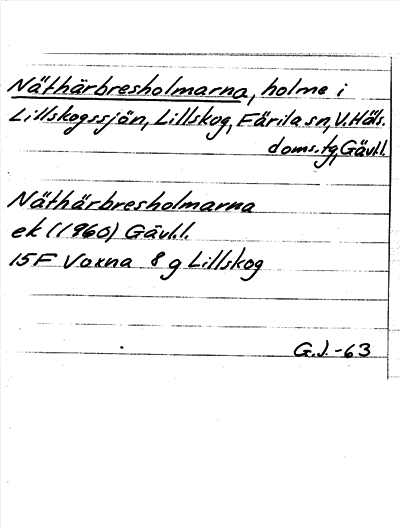 Näthärbresholmarna, holme i
Lillskogssjön, Lillskog, Färila sn, V.Häls.
doms.tg, Gävl.l.
Näthärbresholmarna
ek (1960) Gävl.l.
15F Voxna 8 g Lillskog
G.J.-63